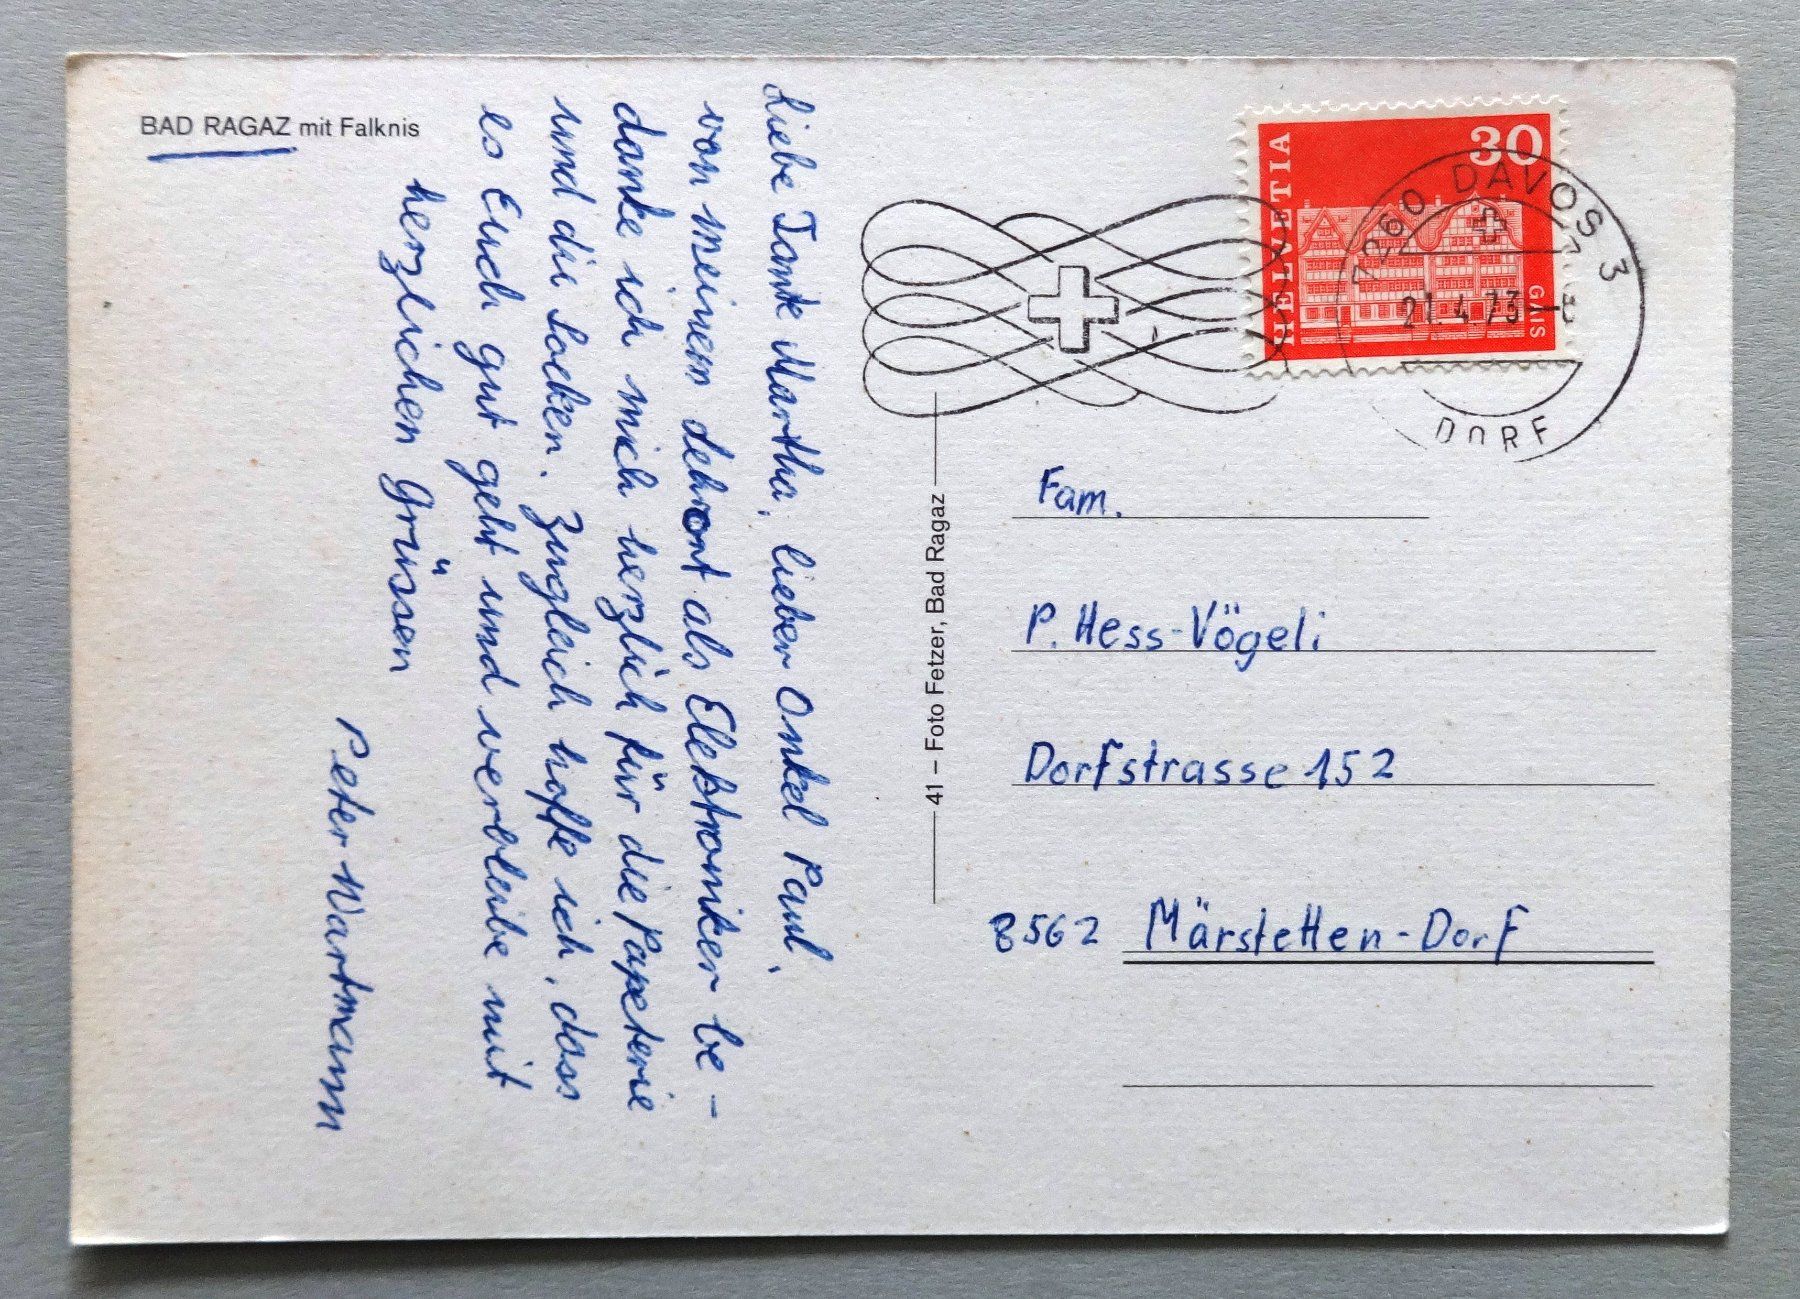 BAD RAGAZ mit Falknis
Liebe Tante Martha, lieber Onkel Paul,
von meinem debront als Elektroniker be-
danke ich mich herzlich für die Papeterie
und die Socken. Zugleich hoffe ich, dass
es Euch gut geht und verbleibe mit
herzlichen Grüssen
Peter Wartmann
41 – Foto Fetzer, Bad Ragaz
HELVETIA
30
GAIS
7260 DAVOS 3
21.4.73
DORF
Fam.
P. Hess-Vögeli
Dorfstrasse 152
8562 Märstetten-Dorf